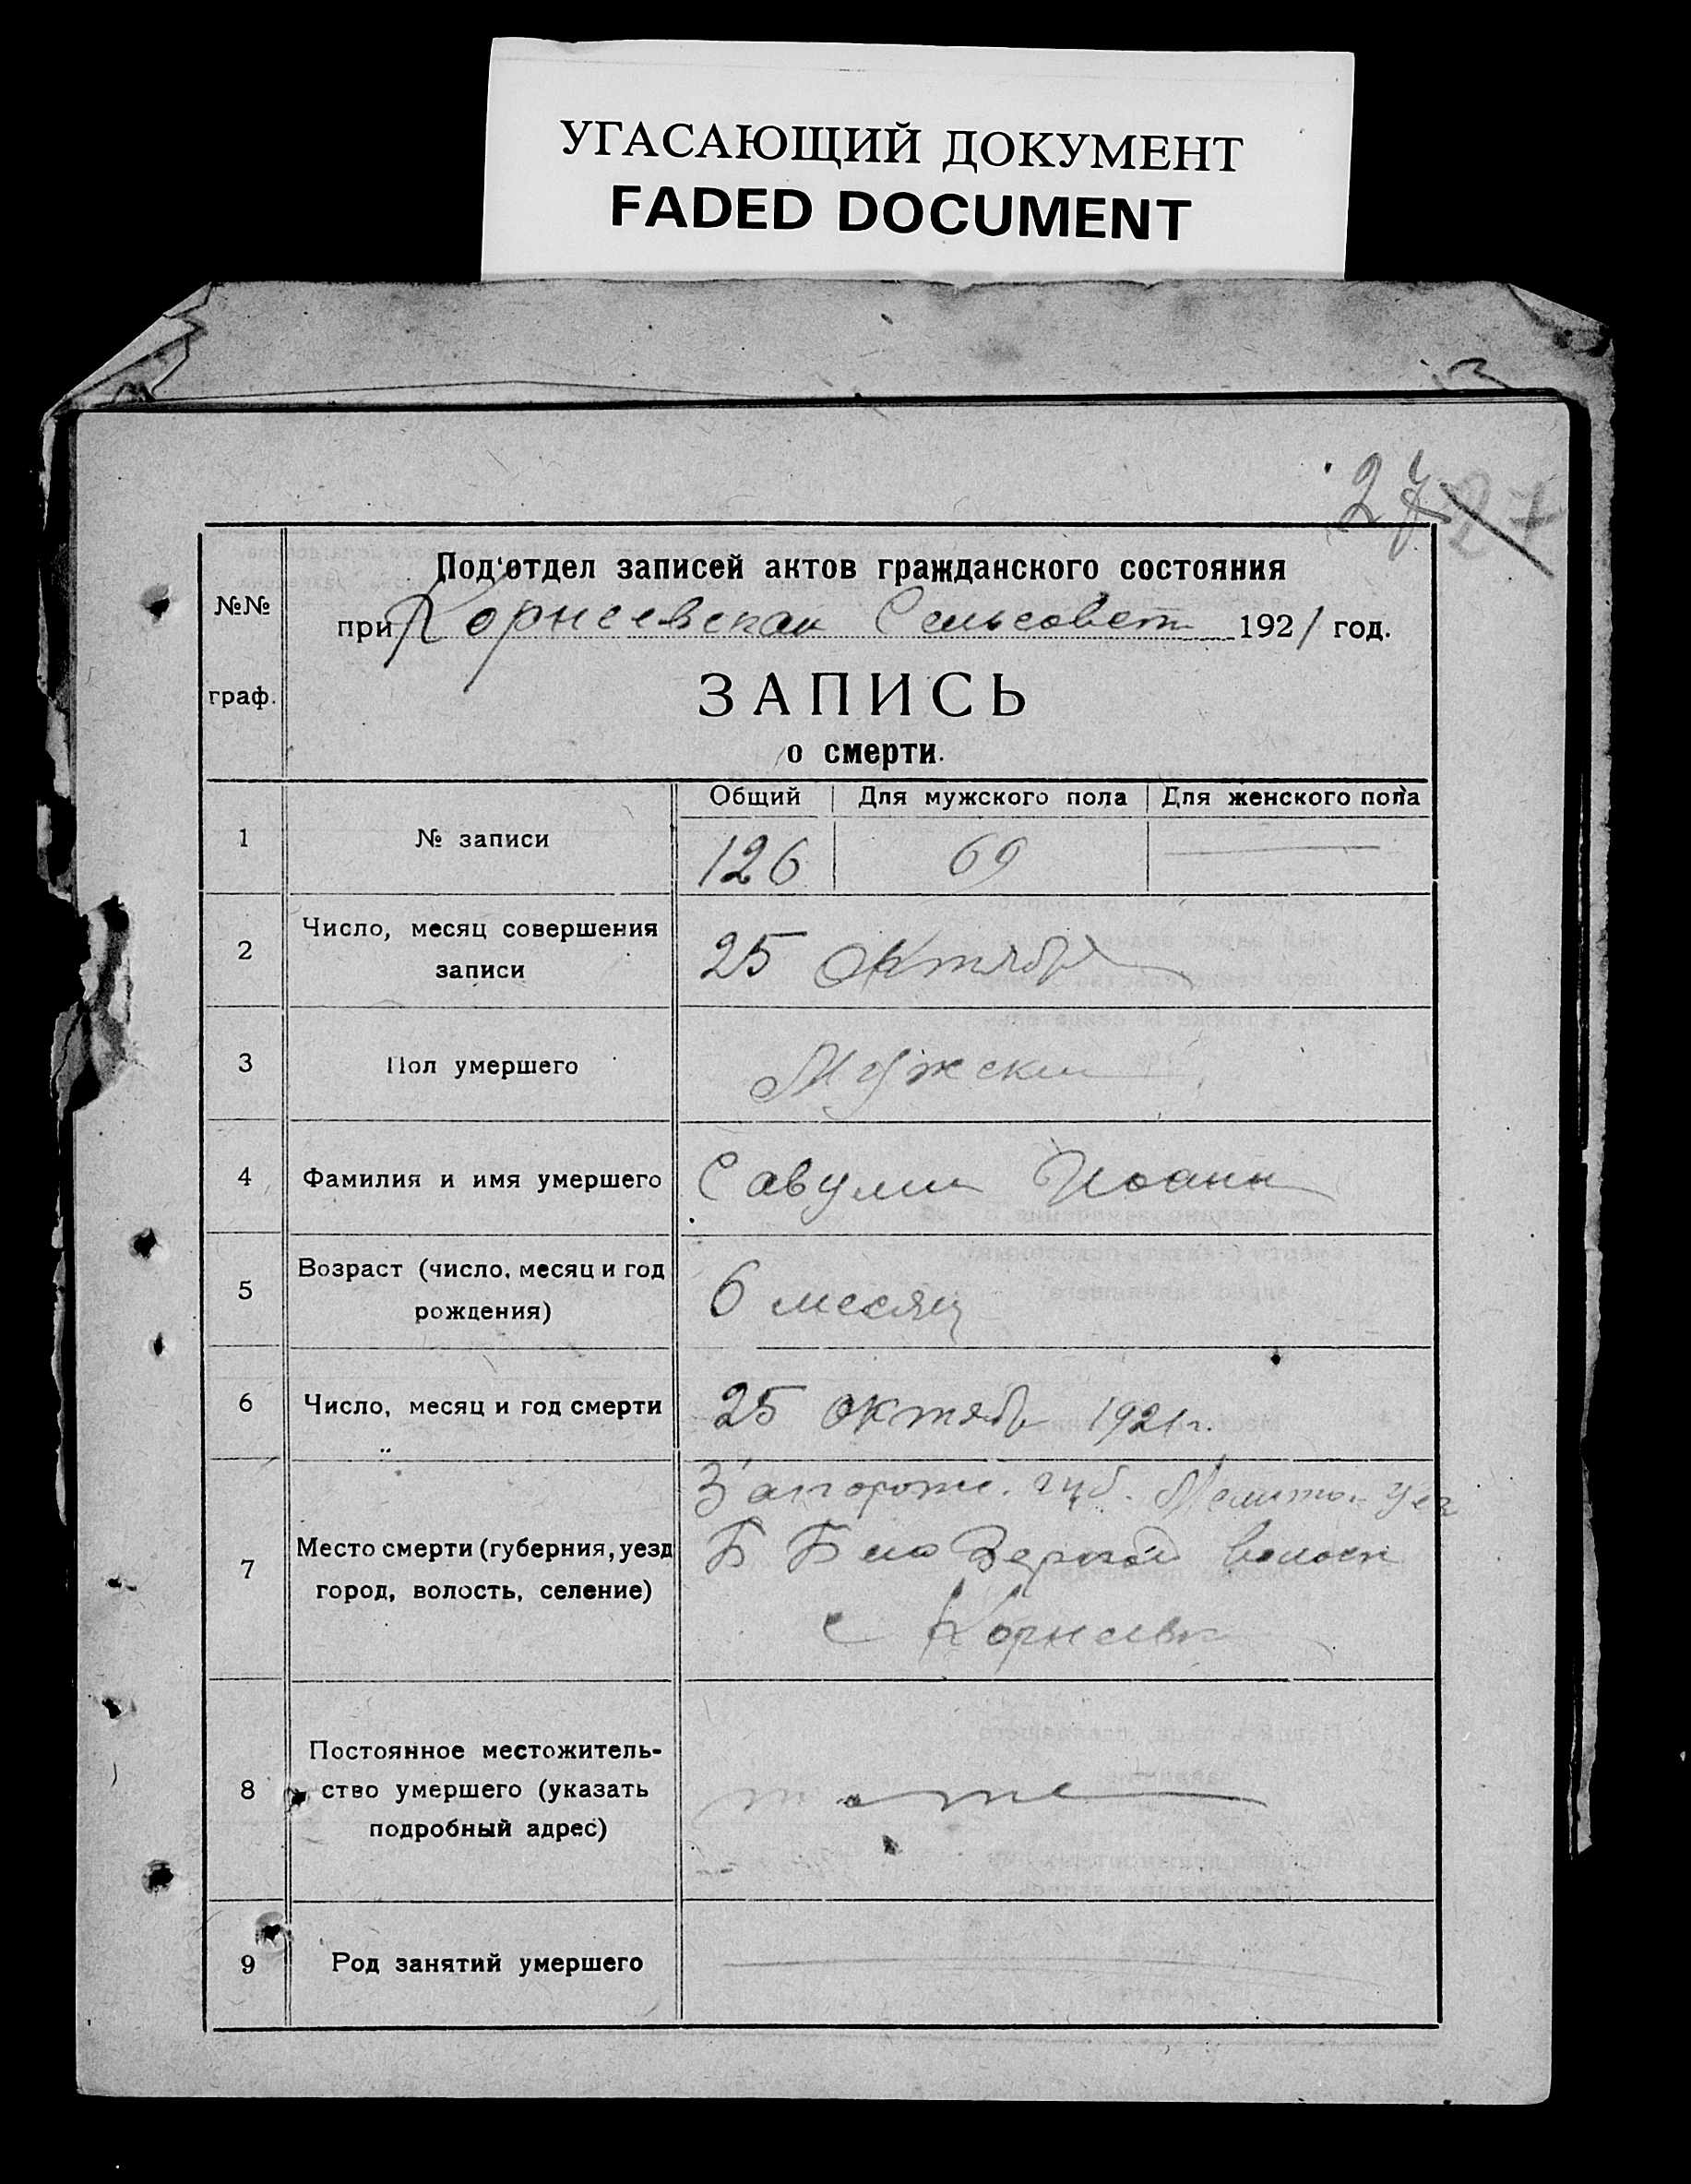 УГАСАЮЩИЙ ДОКУМЕНТ
FADED DOCUMENT
27 27
№№ граф.
Под'отдел записей актов гражданского состояния
при Корнеевском Сельсовет 1921 год.
ЗАПИСЬ
о смерти.
Общий Для мужского пола Для женского пола
1 № записи 126 69
2 Число, месяц совершения записи 25 октября
3 Пол умершего Мужски
4 Фамилия и имя умершего Иоанн
5 Возраст (число, месяц и год рождения) 6 месяц
6 Число, месяц и год смерти 25 октябр 1921 г.
7 Место смерти (губерния, уезд город, волость, селение) Запорож. губ. Мелито. уез
Б Белозерской волост
с Корнеевк
8 Постоянное местожительство умершего (указать подробный адрес) тоже
9 Род занятий умершего